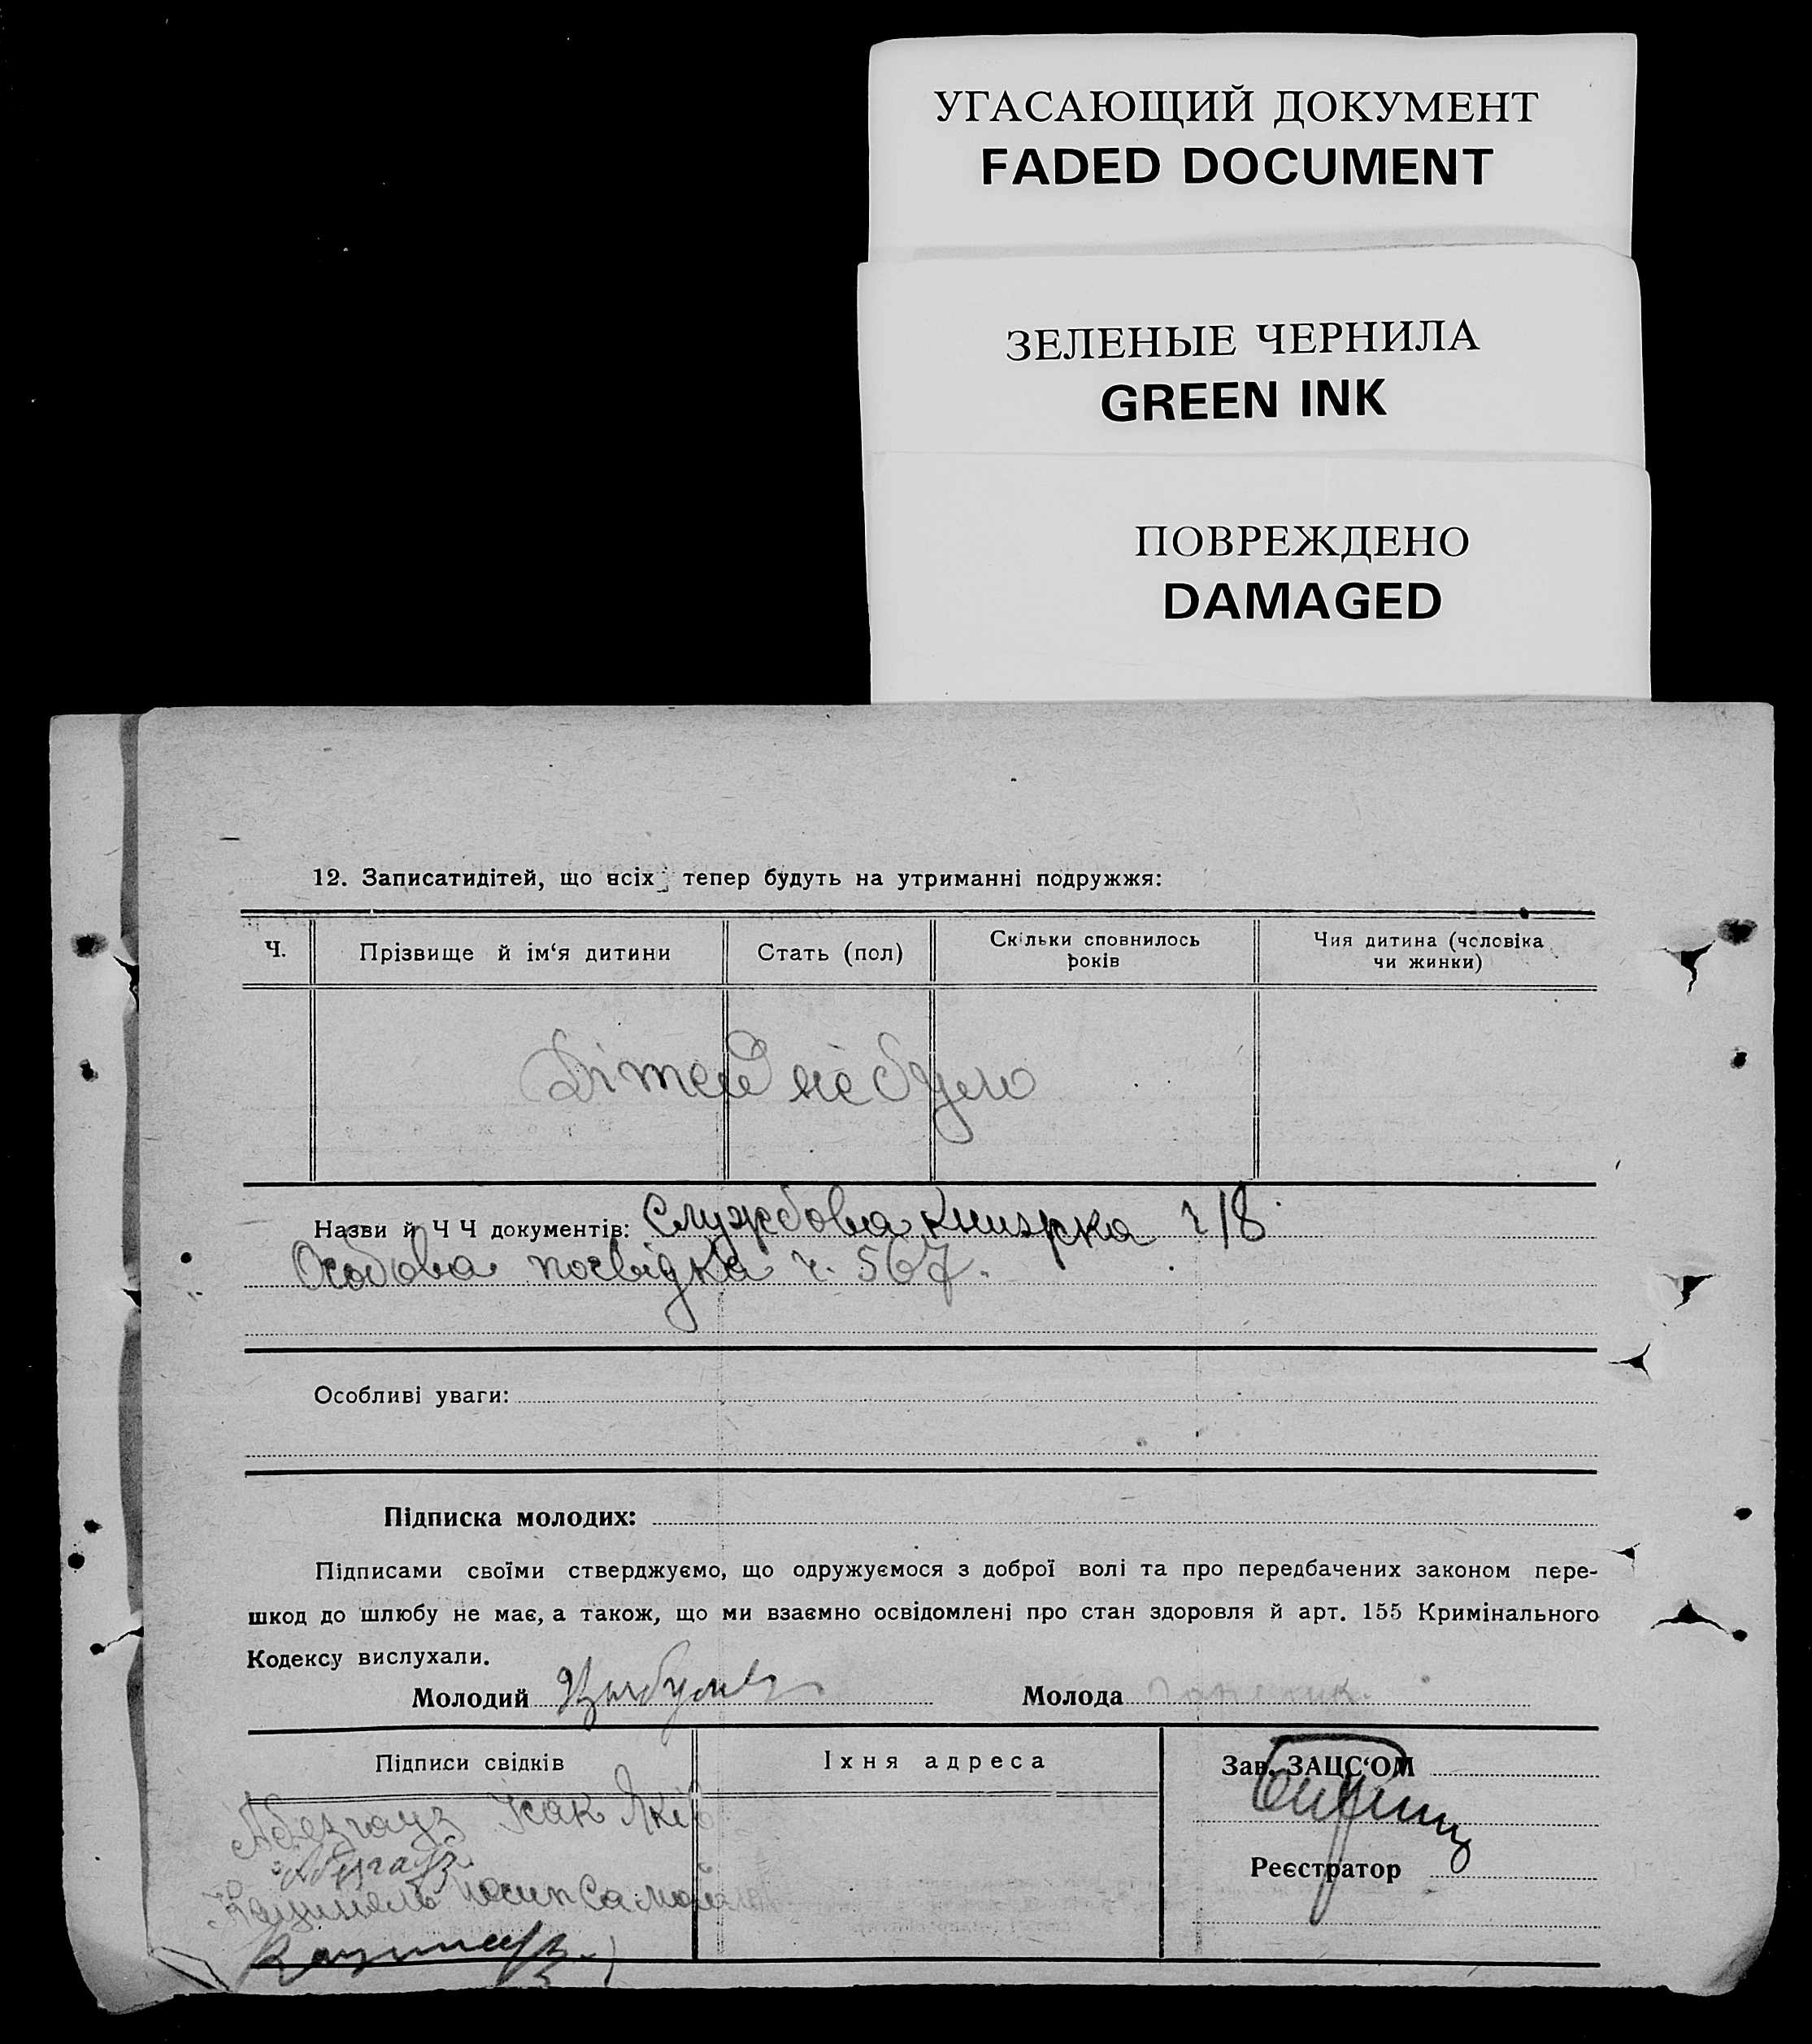 УГАСАЮЩИЙ ДОКУМЕНТ
FADED DOCUMENT
ЗЕЛЕНЫЕ ЧЕРНИЛА
GREEN INK
ПОВРЕЖДЕНО
DAMAGED
12. Записатидітей, що всіх тепер будуть на утриманні подружжя:
Ч. Прізвище й ім‘я дитини Стать (пол) Скільки сповнилось років Чия дитина (чоловіка чи жинки)
Дітей не було
Назви й Ч Ч документів: Службова книжка ч 18
Особова посвідка ч. 567.
Особливі уваги:
Підписка молодих:
Підписами своїми стверджуємо, що одружуємося з доброї волі та про передбачених законом пере-
шкод до шлюбу не має, а також, що ми взаємно освідомлені про стан здоровля й арт. 155 Кримінального
Кодексу вислухали.
Молодий Молода
Підписи свідків Їхня адреса Зав. ЗАЦС‘ОМ
Абезгауз Ісак Яків
Реєстратор
Йосип Самой